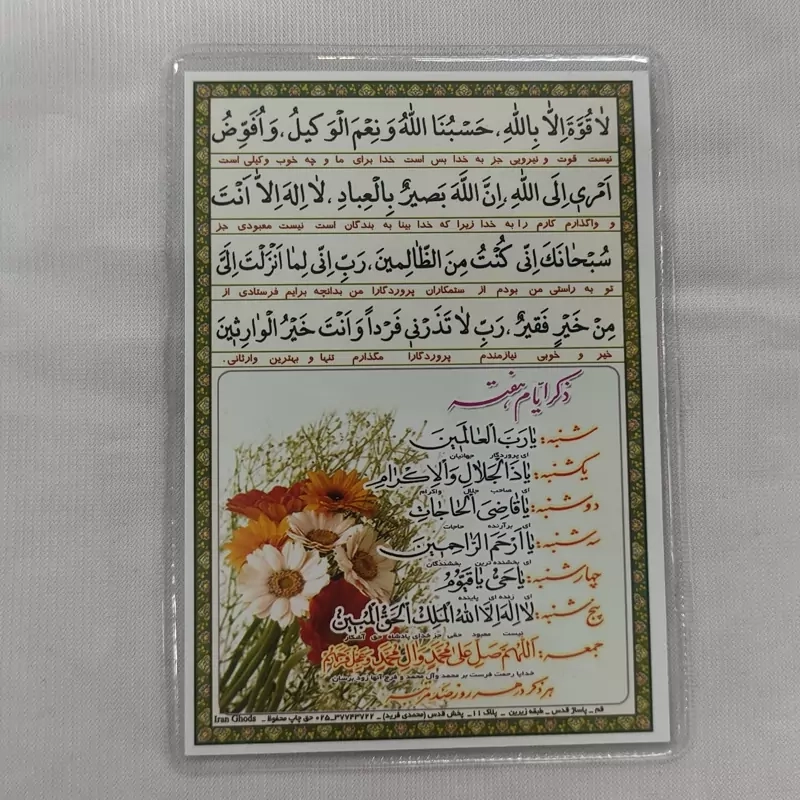 لاٰ قُوَّةَ اِلاّٰ بِاللّٰهِ، حَسْبُنَا اللّٰهُ وَ نِعْمَ الْوَكيلُ، وَ اُفَوِّضُ
نیست قوت و نیرویی جز به خدا بس است خدا برای ما و چه خوب وکیلی است
اَمْری اِلَی اللّٰهِ، اِنَّ اللّٰهَ بَصیرٌ بِالْعِبادِ، لاٰ اِلهَ اِلاّٰ اَنْتَ
و واگذارم کارم را به خدا زیرا که خدا بینا به بندگان است نیست معبودی جز
سُبْحٰانَكَ اِنّی كُنْتُ مِنَ الظّٰالِمینَ، رَبِّ اِنّی لِمٰا اَنْزَلْتَ اِلَیَّ
تو به راستی من بودم از ستمکاران پروردگارا من بدانچه برایم فرستادی از
مِنْ خَیْرٍ فَقیرٌ، رَبِّ لاٰ تَذَرْنی فَرْداً وَ اَنْتَ خَیْرُ الْوٰارِثینَ
خیر و خوبی نیازمندم پروردگارا مگذارم تنها و بهترین وارثانی.
ذکر ایام هفته
شنبه: یا رَبَّ العالَمینَ
ای پروردگار جهانیان
یکشنبه: یا ذَالْجَلالِ وَالْاِکْرامِ
ای صاحب جلال واکرام
دوشنبه: یا قاضِیَ الْحاجاتِ
ای برآرنده حاجات
سه شنبه: یا اَرْحَمَ الرّاحِمینَ
ای بخشنده ترین بخشندگان
چهارشنبه: یا حَیُّ یا قَیُّومُ
ای زنده ای پاینده
پنج شنبه: لا اِلهَ اِلَّا اللهُ الْمَلِكُ الْحَقُّ الْمُبینُ
نیست معبود حقی جز خدای پادشاه حق آشکار
جمعه: اَللّهُمَّ صَلِّ عَلی مُحَمَّدٍ وَ آلِ مُحَمَّدٍ وَ عَجِّلْ فَرَجَهُمْ
خدایا رحمت فرست بر محمد وآل محمد و فرج آنها زود برسان
هر ذکر در هر روز صد مرتبه
قم _ پاساژ قدس _ طبقه زیرین _ پلاک ۱۱_ پخش قدس (محمدی فرید) _ ۳۷۷۴۳۷۲۲_۰۲۵ حق چاپ محفوظ _ Iran Ghods